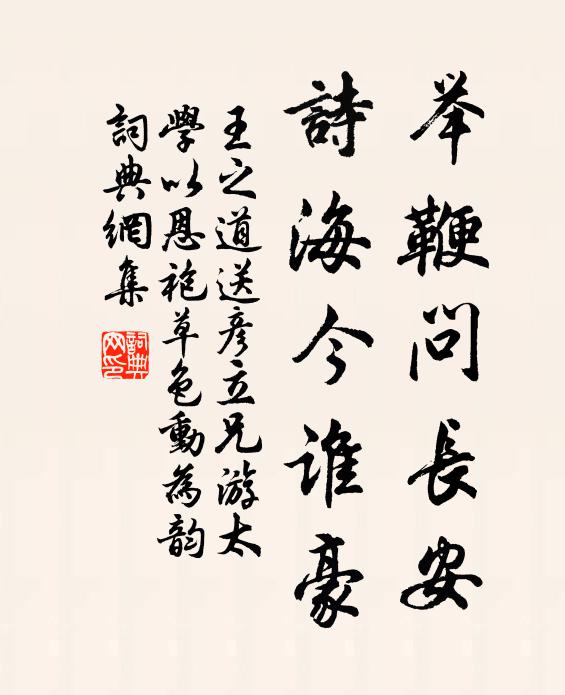 举鞭问長安
詩海今谁豪
王之道送彦立兄游太
學以恩袍草色動為韵
詞典網集
詞典
网印